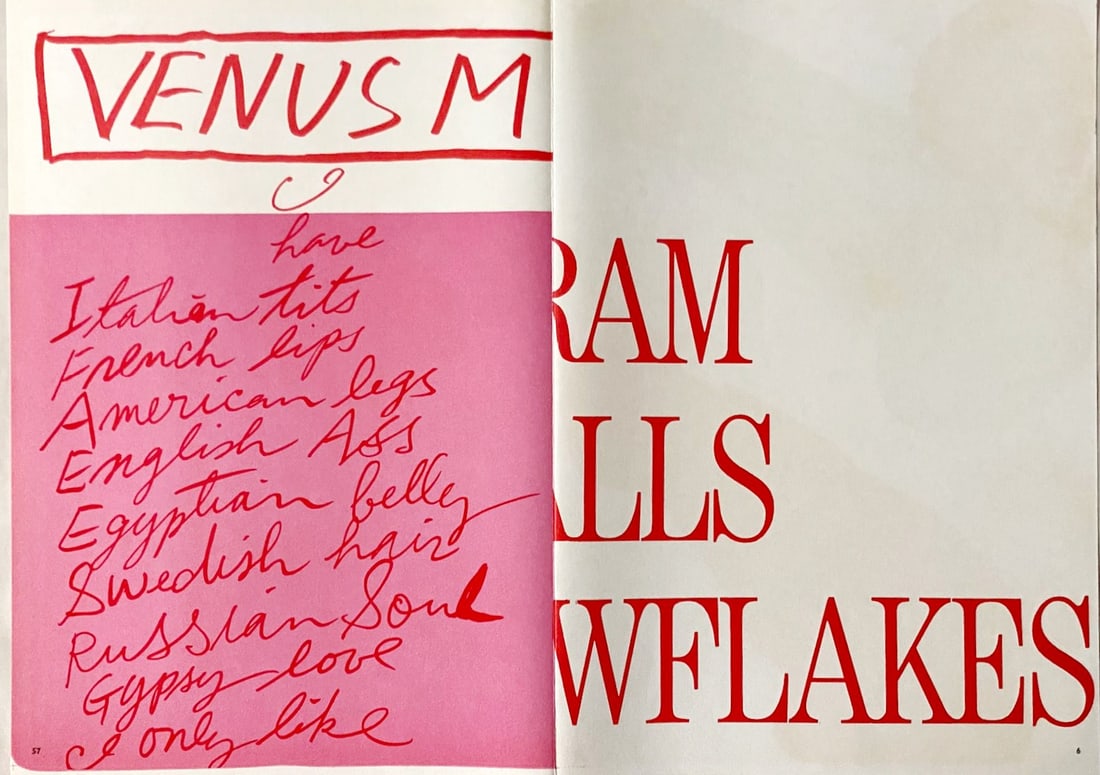 VENUS M
I
have
Italian tits
French lips
American legs
English Ass
Egyptian belly
Swedish hair
Russian Soul
Gypsy love
I only like
57
RAM
ALLS
WFLAKES
6